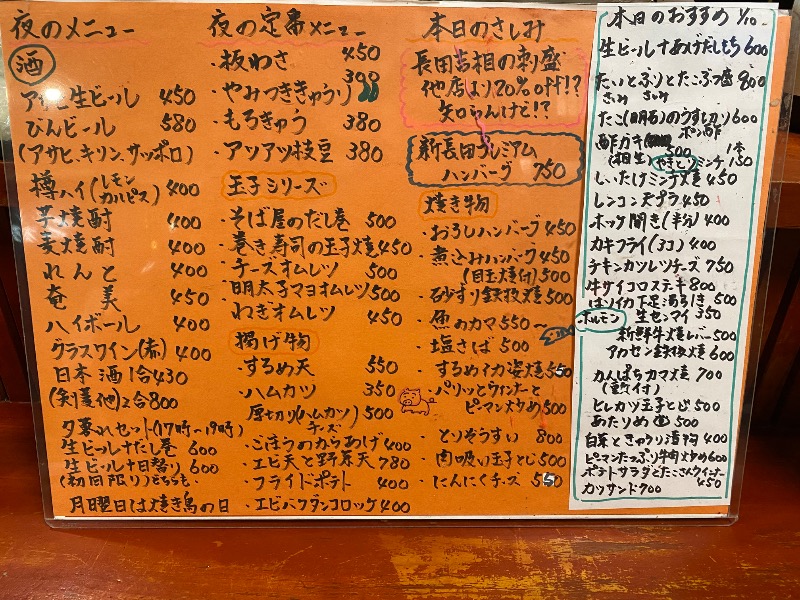 夜のメニュー
酒
アサヒ生ビール 450
びんビール 580
(アサヒ、キリン、サッポロ)
樽ハイ(レモン カルピス) 400
芋焼酎 400
麦焼酎 400
れんと 400
奄美 450
ハイボール 400
グラスワイン(赤) 400
日本酒1合430
(剣菱他)2合800
夕暮れセット(17時〜19時)
生ビール十だし巻 600
生ビール十日替り 600
(初回限り)どちらも
月曜日は焼き鳥の日
夜の定番メニュー
・板わさ 450
・やみつききゅうり 300
・もろきゅう 380
・アツアツ枝豆 380
玉子シリーズ
・そば屋のだし巻 500
・巻き寿司の玉子焼450
・チーズオムレツ 500
・明太子マヨオムレツ500
・ねぎオムレツ 450
揚げ物
・するめ天 550
・ハムカツ 350
・厚切りハムカツ 500
チーズ
・ごぼうのからあげ400
・エビ天と野菜天 780
・フライドポテト 400
・エビバクダンコロッケ400
本日のさしみ
長田吉相の刺盛
他店より20%off!?
知らんけど!?
新長田プレミアム
ハンバーグ 750
焼き物
・おろしハンバーグ450
・煮込みハンバーグ450
(目玉焼付)500
・砂ずり鉄板焼500
・魚のカマ550〜
・塩さば 500
・するめイカ姿焼550
・パリッとウィンナーと
ピーマン炒め500
・とりぞうすい 800
・肉吸い玉子とじ500
・にんにくチーズ 550
本日のおすすめ 1/10
生ビール十あげだしもち600
たいとぶりとたこぶつ盛 900
さしみ さしみ
たこ(明石)のうす切り600
ポン酢
酢ガキ 500
(相生) やきとりミンチ 1本150
しいたけミンチ焼 450
レンコン天プラ450
ホッケ開き(半分)400
カキフライ(3コ)400
チキンカツレツチーズ750
牛サイコロステーキ800
ホルモン 生センマイ 350
新鮮牛焼レバー500
アカセン鉄板焼600
かんぱちカマ焼 700
ヒレカツ玉子とじ500
白菜ときゅうり漬物400
ピーマンたっぷり牛肉炒め600
ポテトサラダとたこさんウインナー
450
カツサンド700